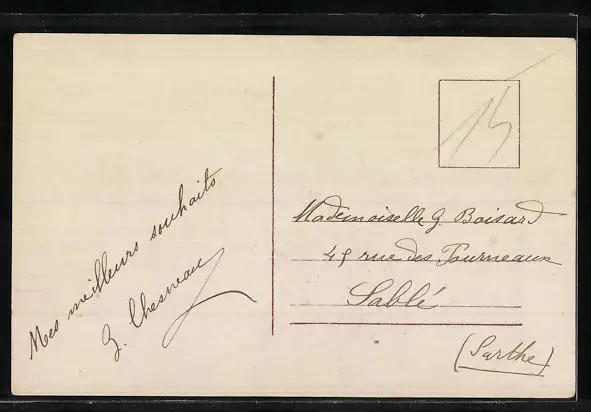 Mes meilleurs souhaits
G. Chesneau
15
Mademoiselle G. Boisard
49 rue des Fourneaux
Sablé
(Sarthe)